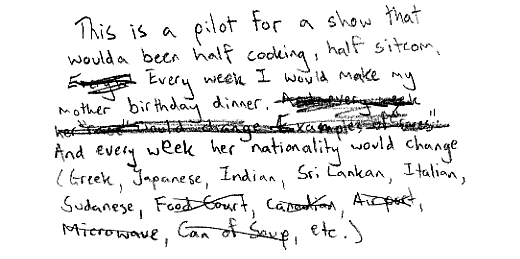 This is a pilot for a show that
woulda been half cooking, half sitcom.
Every week I would make my
mother birthday dinner. And every week
her "race" would change. Examples of
And every week her nationality would change
(Greek, Japanese, Indian, Sri Lankan, Italian,
Sudanese, Food Court, Canadian, Airport,
Microwave, Can of Soup, etc.)